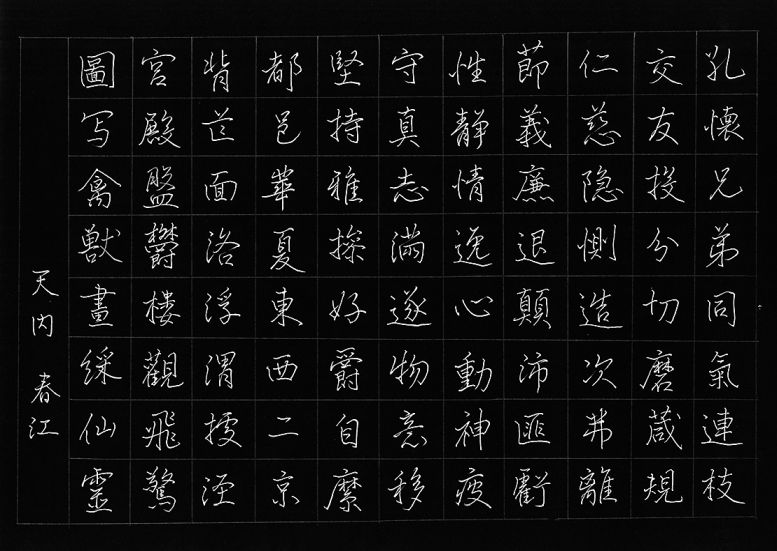 孔懐兄弟同氣連枝
交友投分切磨葴規
仁慈隠惻造次弗離
莭義廉退顛沛匪虧
性静情逸心動神疲
守真志満逐物意移
堅持雅操好爵自縻
都邑華夏東西二京
背芒面洛浮渭據涇
宮殿盤欝楼觀飛驚
圖写禽獣畫綵仙靈
天内 春江